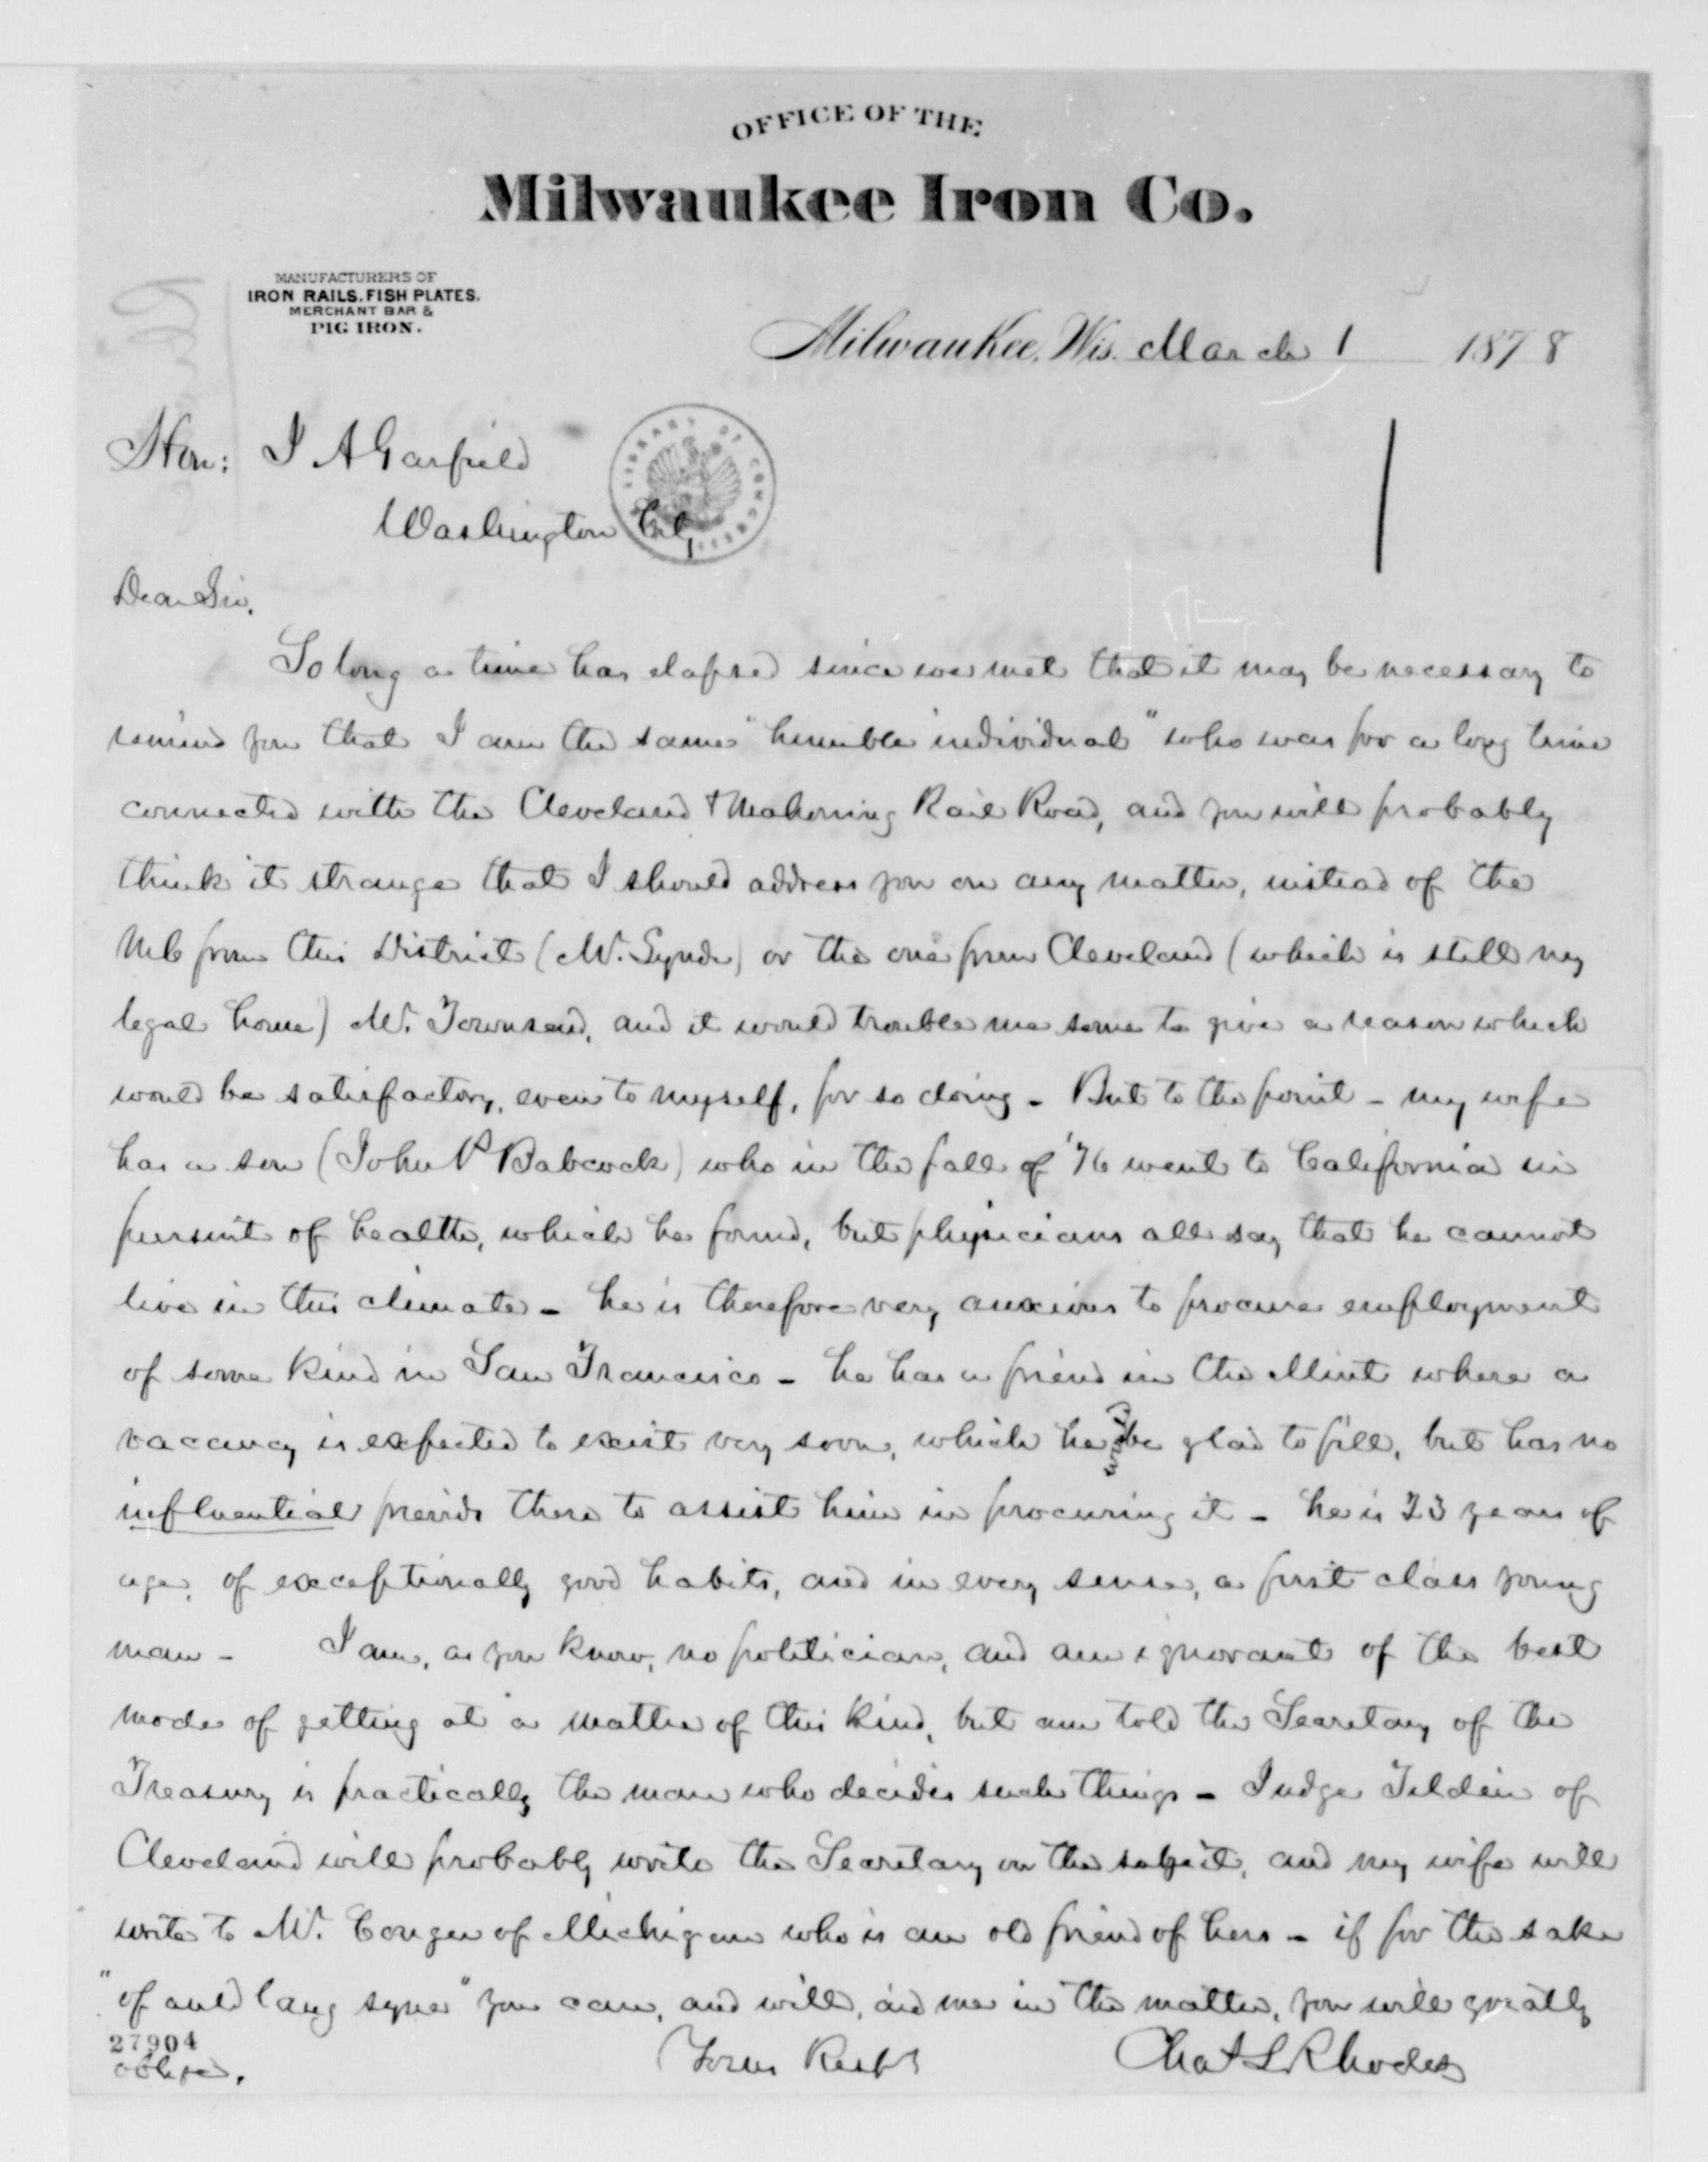 OFFICE OF THE
Milwaukee Iron Co.
MANUFACTURERS OF
IRON RAILS, FISH PLATES,
MERCHANT BAR &
PIG IRON.
Milwaukee, Wis. March 1 1878
Hon: J A Garfield
LIBRARY OF CONGRESS
Washington City
Dear Sir,
So long a time has elapsed since we met that it may be necessary to
remind you that I am the same "humble individual" who was for a long time
connected with the Cleveland & Mahoning Rail Road, and you will probably
think it strange that I should address you on any matter, instead of the
M.C. from this District (Mr. Lynde) or the one from Cleveland (which is still my
legal home) Mr. Townsend, and it would trouble me some to give a reason which
would be satisfactory, even to myself, for so doing - But to the point - my wife
has a son (John P Babcock) who in the fall of '76 went to California in
pursuit of health, which he found, but physicians all say that he cannot
live in this climate - he is therefore very anxious to procure employment
of some kind in San Francisco - he has a friend in the Mint where a
vacancy is expected to exist very soon, which he would be glad to fill, but has no
influential friends there to assist him in procuring it - he is 23 years of
age, of exceptionally good habits, and in every sense, a first class young
man - I am, as you know, no politician, and am ignorant of the best
mode of getting at a matter of this kind, but am told the Secretary of the
Treasury is practically the man who decides such things - Judge Tilden of
Cleveland will probably write the Secretary on the subject, and my wife will
write to Mr. Conger of Michigan who is an old friend of hers - if for the sake
"of auld lang syne" you can, and will, aid me in the matter, you will greatly
27904
oblige. Yours Respt Chas L Rhodes